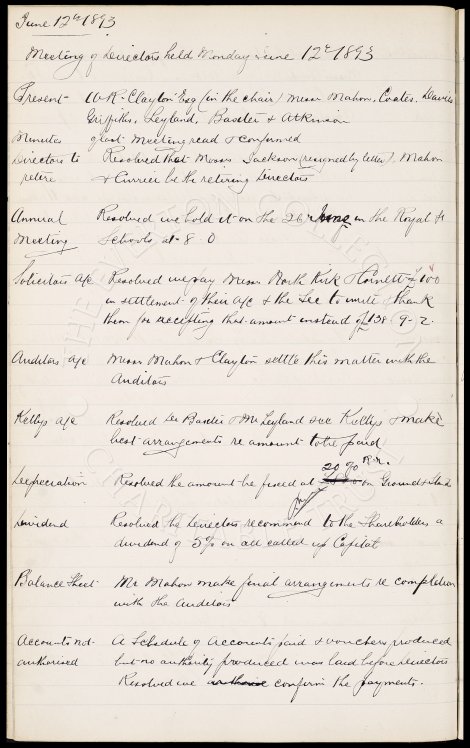 June 12th 1893
Meeting of Directors held Monday June 12th 1893
Present - W.R. Clayton Esq (in the chair) Messrs Mahon, Coates, Davies
Griffiths, Leyland, Baxter & Atkinson
Minutes of last Meeting read & confirmed
Directors to Resolved that Messrs Jackson (resigned by letter), Mahon
retire & Currier be the retiring Directors
Annual Resolved we hold it on the 26th June in the Royal St
Meeting Schools at 8-0
Solicitors a/c Resolved we pay Messrs North Kirk & Cornett £100
in settlement of their a/c & the Sec to write & thank
them for accepting that amount instead of £138-9-2.
Auditors a/c Messrs Mahon & Clayton settle this matter with the
Auditors
Kellys a/c Resolved Dr Baxter & Mr Leyland see Kellys & make
best arrangements re amount to be paid
Depreciation Resolved the amount be fixed at 20% on Ground & Stand
Dividend Resolved the Directors recommend to the Shareholders a
dividend of 5% on all called up Capital
Balance Sheet Mr Mahon make final arrangements re completion
with the Auditors
Accounts not A Schedule of Accounts paid & vouchers produced
authorised but no authority produced was laid before Directors
Resolved we confirm the payments.
THE EVERTON COLLECTION
CHARITABLE TRUST